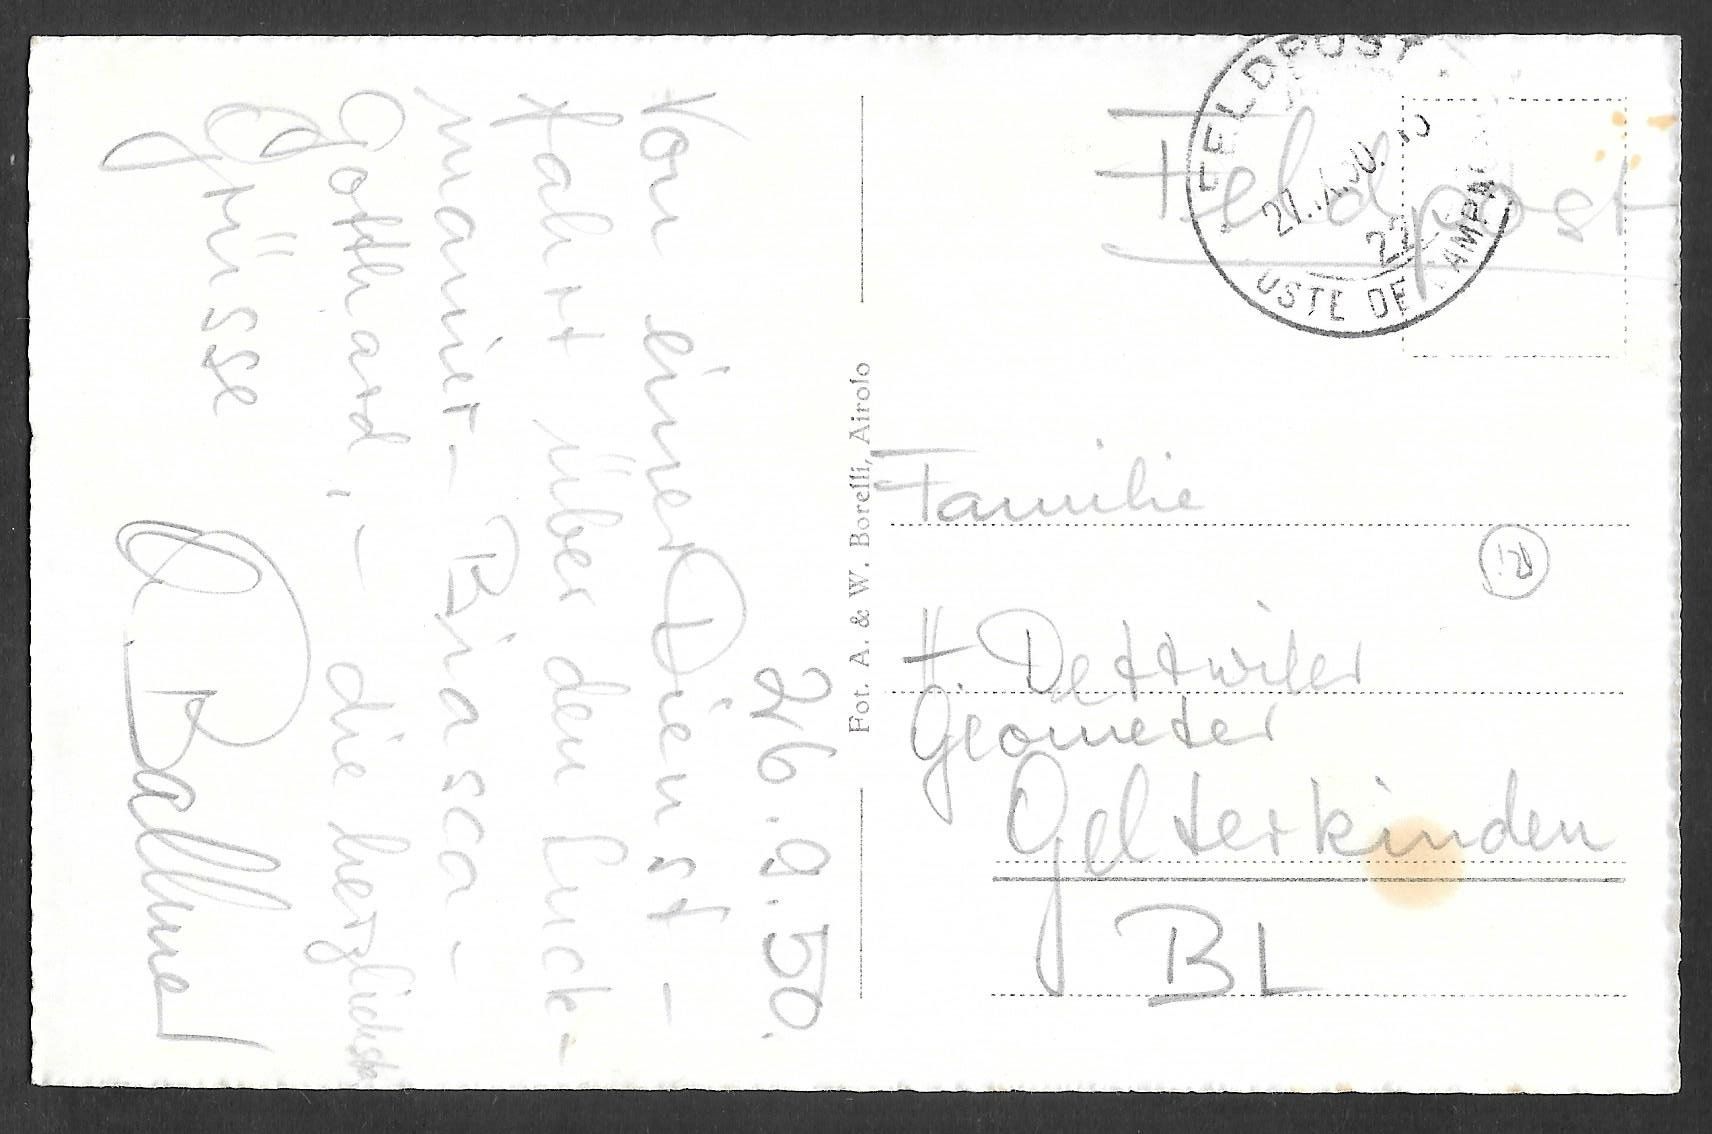 26.8.50.
Von einer Dienst-
fahrt über den Luck-
manier - Biasca -
Gotthard, - die herzlichsten
Grüsse
R Ballmer
Fot. A. & W. Borelli, Airolo
Feldpost
FELDPOST
AUG.
22
OSTE DE AMPA
Familie
H. Dettwiler
Geometer
Gelterkinden
BL